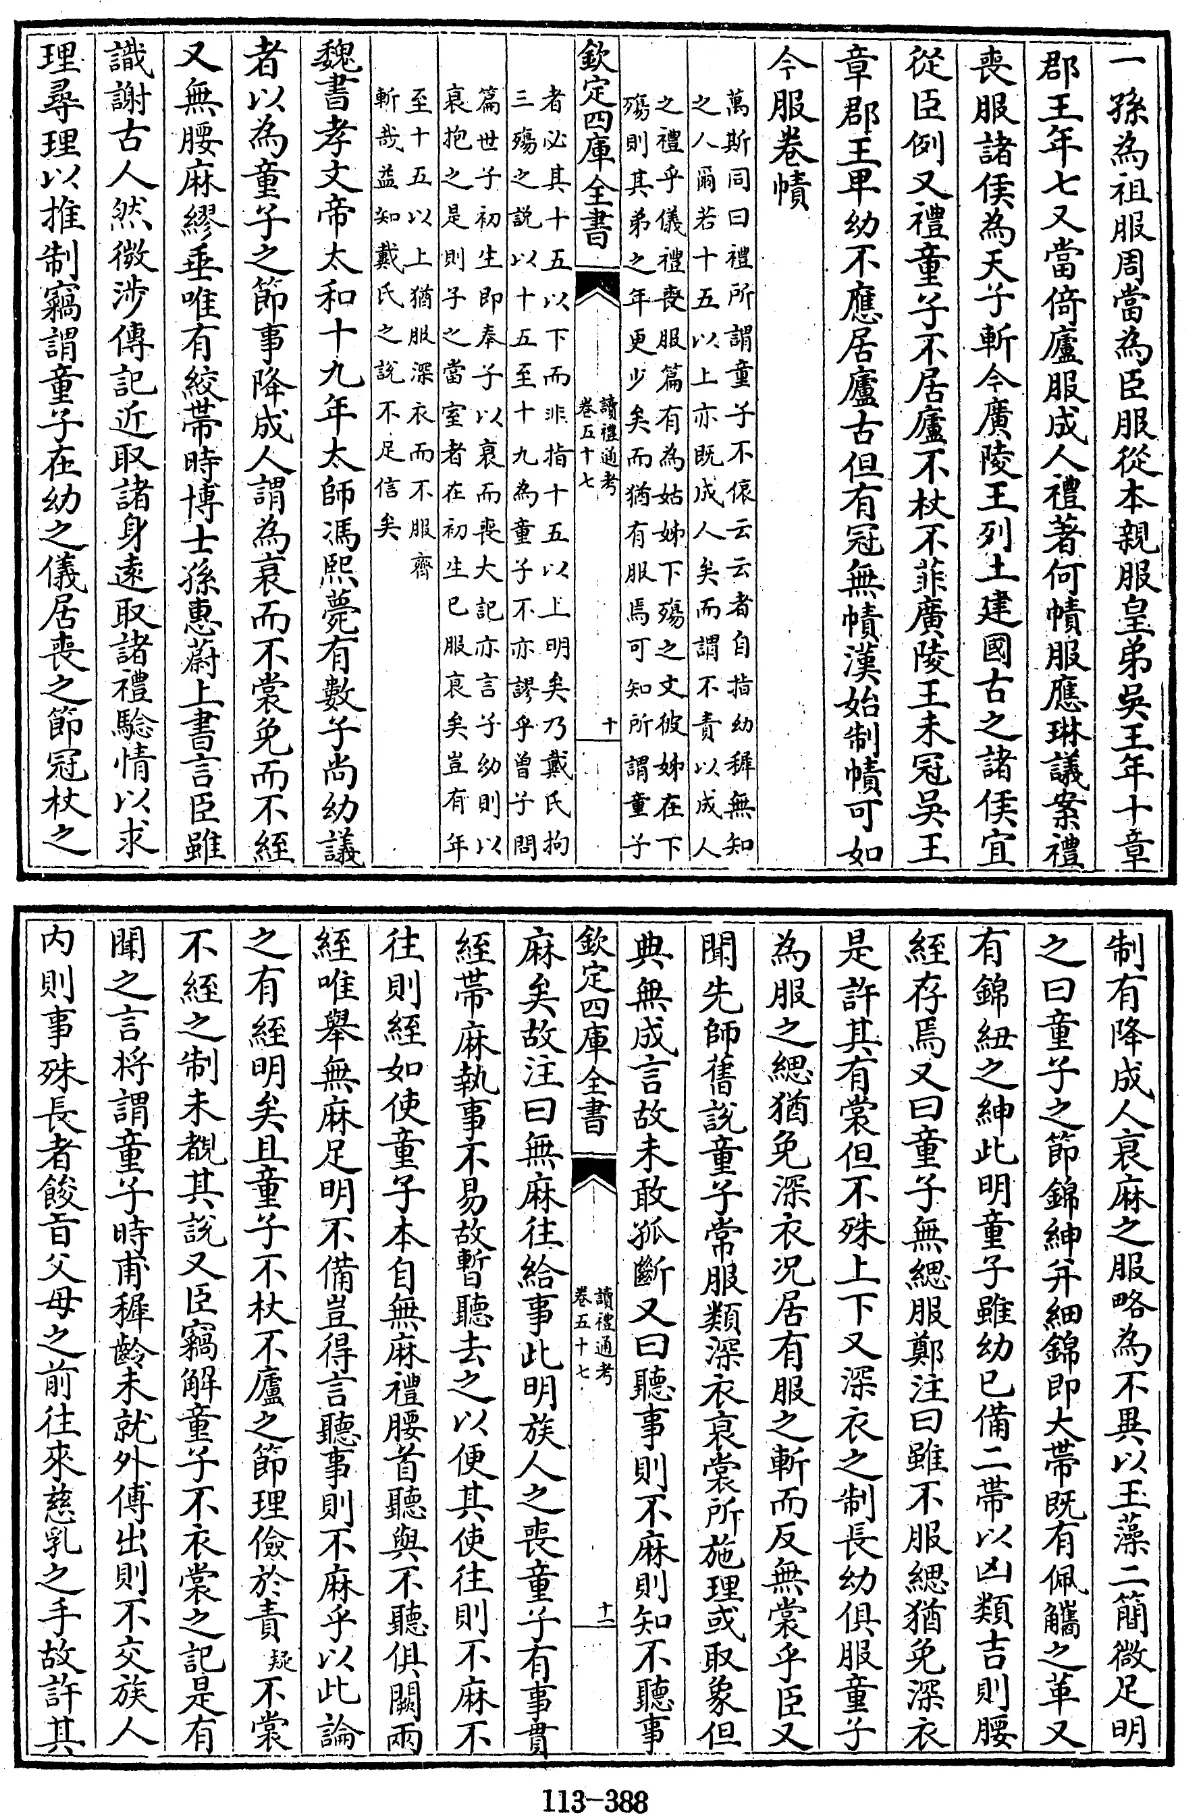 一孫為祖服周當為臣服從本親服皇弟吳王年十章
郡王年七又當倚廬服成人禮著何幘服應琳議案禮
喪服諸侯為天子斬今廣陵王列土建國古之諸侯宜
從臣例又禮童子不居廬不杖不菲廣陵王未冠吳王
章郡王甲幼不應居廬古但有冠無幘漢始制幘可如
今服卷幘
萬斯同曰禮所謂童子不偯云云者自指幼穉無知
之人爾若十五以上亦既成人矣而謂不責以成人
之禮乎儀禮喪服篇有為姑姊下殤之文彼姊在下
殤則其弟之年更少矣而猶有服焉可知所謂童子
欽定四庫全書
讀禮通考
卷五十七
十
者必其十五以下而非指十五以上明矣乃戴氏拘
三殤之説以十五至十九為童子不亦謬乎曾子問
篇世子初生即奉子以衰而喪大記亦言子幼則以
衰抱之是則子之當室者在初生已服衰矣豈有年
至十五以上猶服深衣而不服齊
斬哉益知戴氏之説不足信矣
魏書孝文帝太和十九年太師馮熙薨有數子尚幼議
者以為童子之節事降成人謂為衰而不裳免而不絰
又無腰麻繆垂唯有絞帶時博士孫惠蔚上書言臣雖
識謝古人然微涉傳記近取諸身遠取諸禮驗情以求
理尋理以推制竊謂童子在幼之儀居喪之節冠杖之
制有降成人衰麻之服略為不異以玉藻二簡微足明
之曰童子之節錦紳并細錦即大帶既有佩觿之革又
有錦紐之紳此明童子雖幼已備二帶以凶類吉則腰
絰存焉又曰童子無緦服鄭注曰雖不服緦猶免深衣
是許其有裳但不殊上下又深衣之制長幼俱服童子
為服之緦猶免深衣况居有服之斬而反無裳乎臣又
聞先師舊説童子常服類深衣衰裳所施理或取象但
典無成言故未敢孤斷又曰聽事則不麻則知不聽事
欽定四庫全書
讀禮通考
卷五十七
十一
麻矣故注曰無麻往給事此明族人之喪童子有事貫
絰帶麻執事不易故暫聽去之以便其使往則不麻不
往則絰如使童子本自無麻禮腰首聽與不聽俱闕兩
絰唯舉無麻足明不備豈得言聽事則不麻乎以此論
之有絰明矣且童子不杖不廬之節理儉於責疑不裳
不絰之制未覩其説又臣竊解童子不衣裳之記是有
聞之言將謂童子時甫穉齡未就外傅出則不交族人
内則事殊長者餕旨父母之前往來慈乳之手故許其
113-388